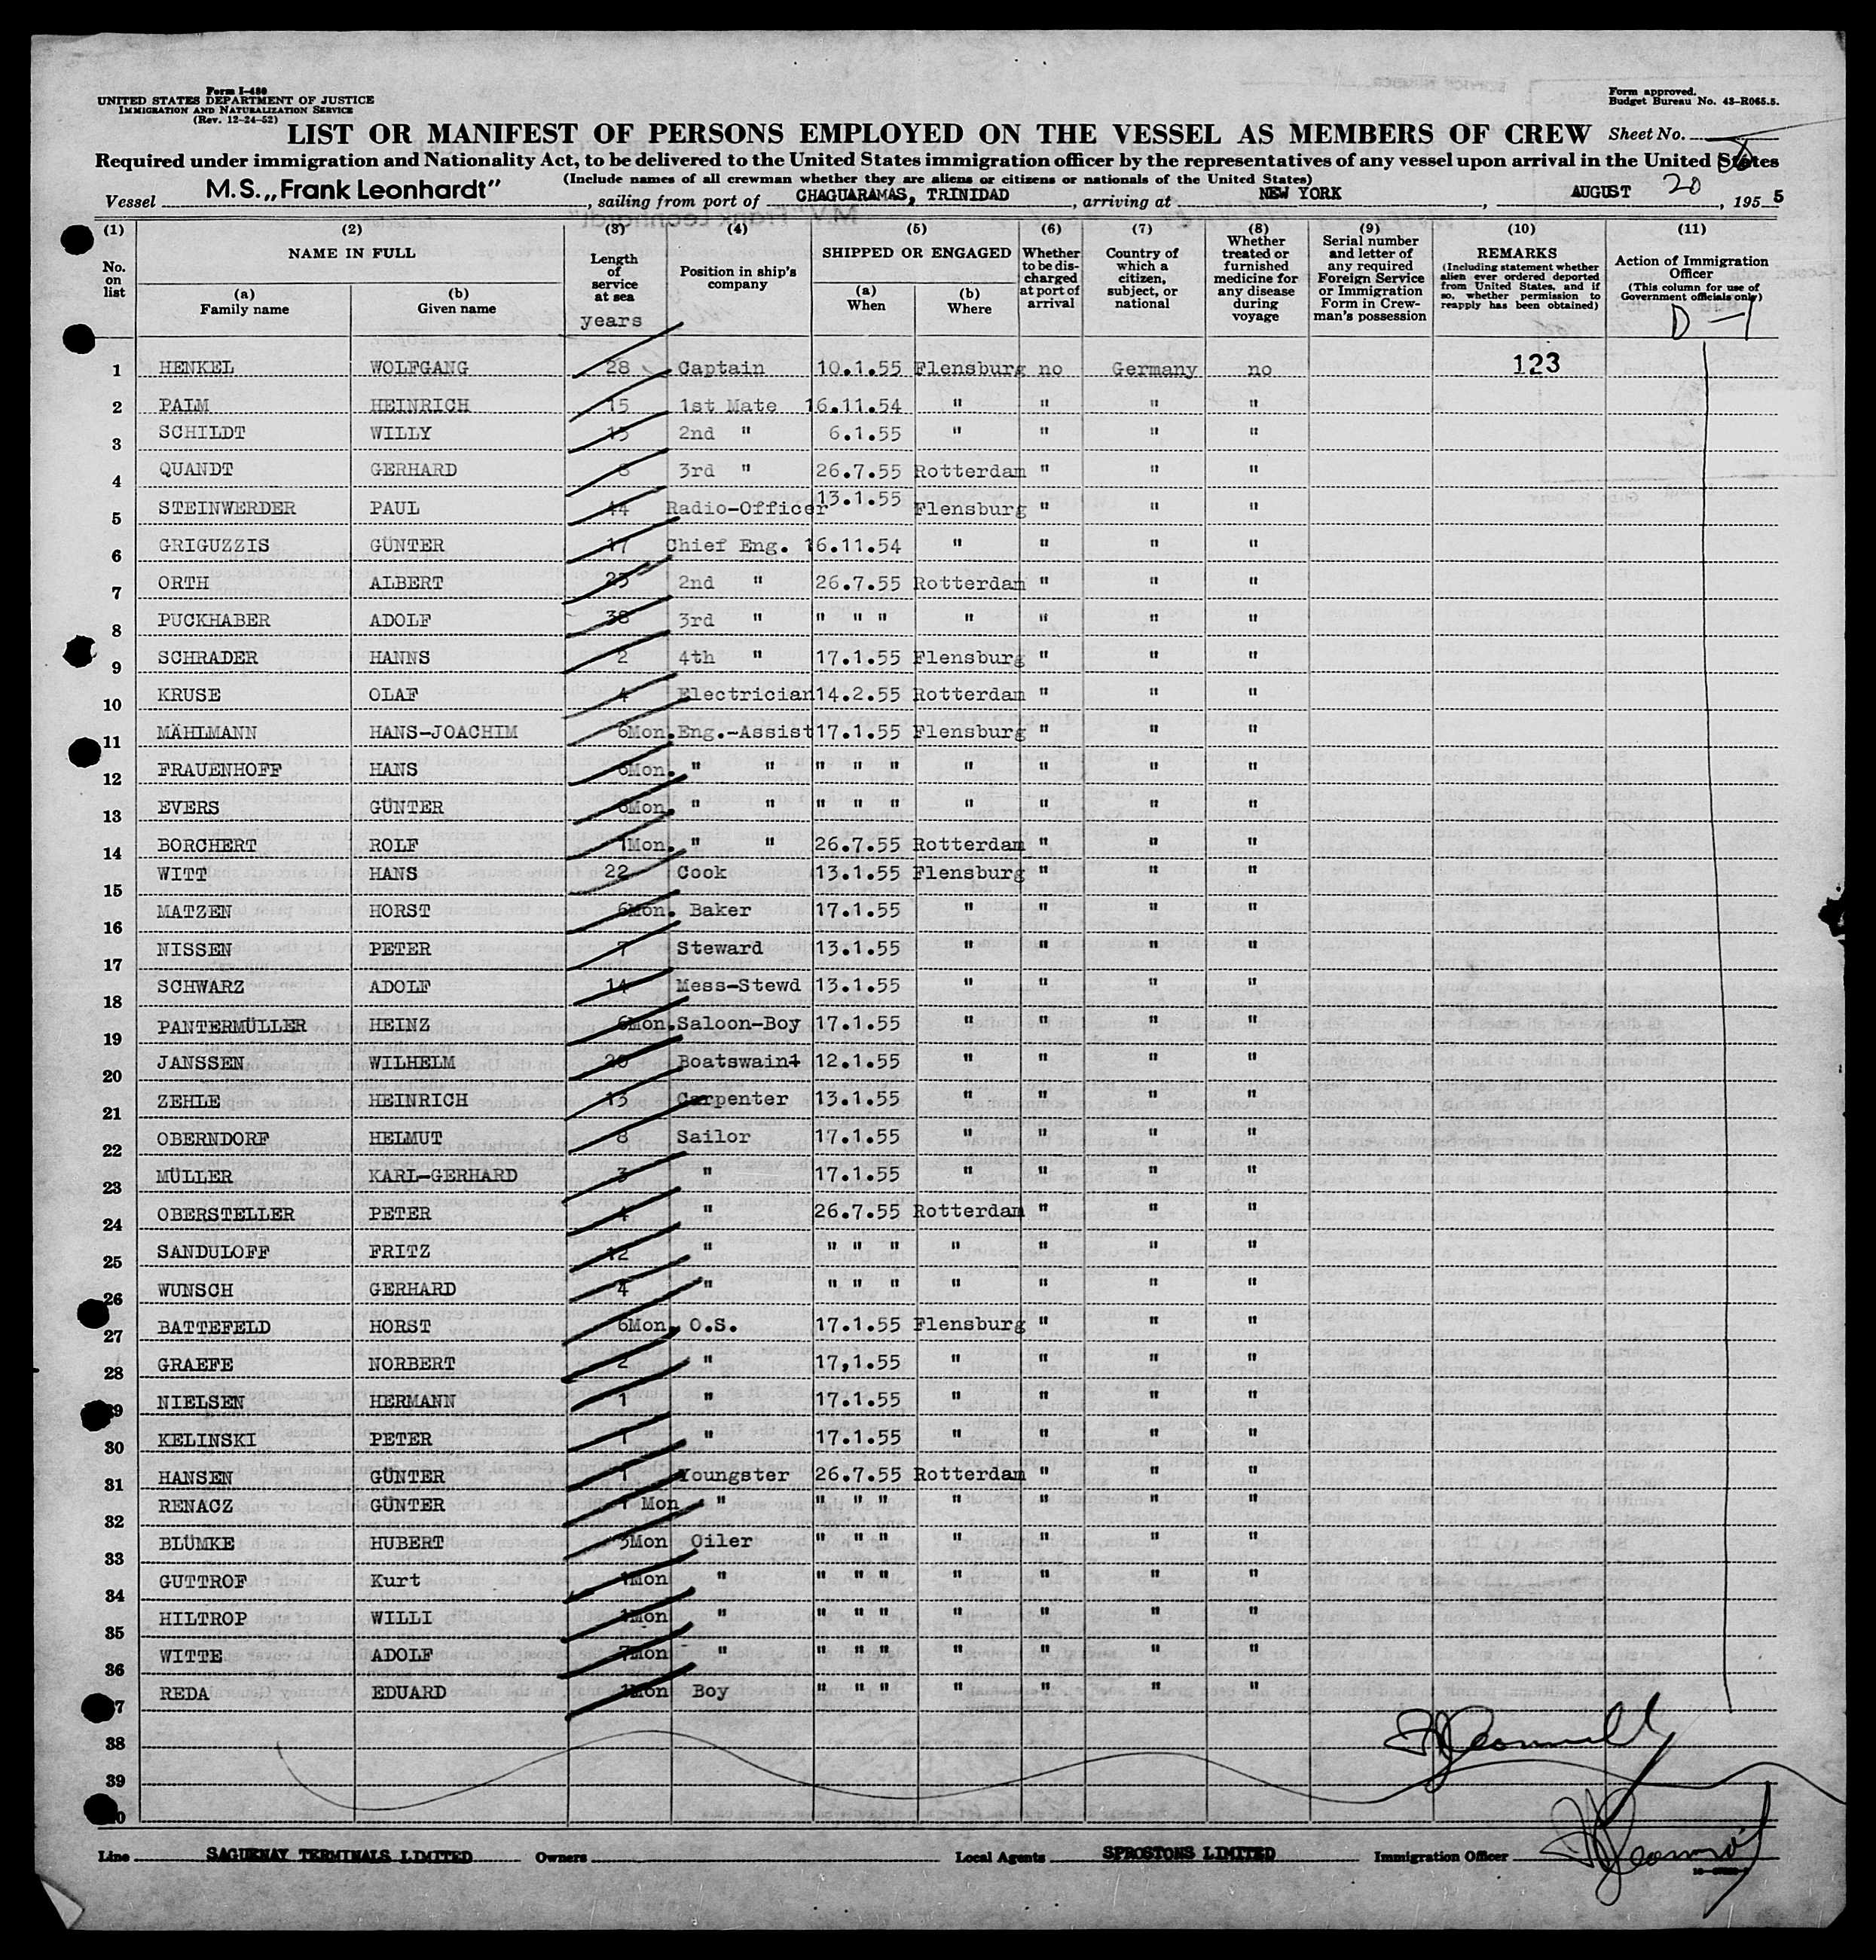 Form I-480
UNITED STATES DEPARTMENT OF JUSTICE
IMMIGRATION AND NATURALIZATION SERVICE
(Rev. 12-24-52)
Form approved.
Budget Bureau No. 43-R065.5.
LIST OR MANIFEST OF PERSONS EMPLOYED ON THE VESSEL AS MEMBERS OF CREW Sheet No.
Required under immigration and Nationality Act, to be delivered to the United States immigration officer by the representatives of any vessel upon arrival in the United States
(Include names of all crewman whether they are aliens or citizens or nationals of the United States)
Vessel M.S. „Frank Leonhardt", sailing from port of CHAGUARAMAS, TRINIDAD, arriving at NEW YORK, AUGUST 20, 1955
(1) No. on list
(2) NAME IN FULL (a) Family name (b) Given name
(3) Length of service at sea years
(4) Position in ship's company
(5) SHIPPED OR ENGAGED (a) When (b) Where
(6) Whether to be discharged at port of arrival
(7) Country of which a citizen, subject, or national
(8) Whether treated or furnished medicine for any disease during voyage
(9) Serial number and letter of any required Foreign Service or Immigration Form in Crewman's possession
(10) REMARKS (Including statement whether alien ever ordered deported from United States, and if so, whether permission to reapply has been obtained)
(11) Action of Immigration Officer (This column for use of Government officials only)
D-1
1 HENKEL WOLFGANG 28 Captain 10.1.55 Flensburg no Germany no 123
2 PALM HEINRICH 15 1st Mate 16.11.54 " " " "
3 SCHILDT WILLY 15 2nd " 6.1.55 " " " "
4 QUANDT GERHARD 8 3rd " 26.7.55 Rotterdam " " "
5 STEINWERDER PAUL 44 Radio-Officer 13.1.55 Flensburg " " "
6 GRIGUZZIS GÜNTER 17 Chief Eng. 16.11.54 " " " "
7 ORTH ALBERT 23 2nd " 26.7.55 Rotterdam " " "
8 PUCKHABER ADOLF 38 3rd " " " " " " " "
9 SCHRADER HANNS 2 4th " 17.1.55 Flensburg " " "
10 KRUSE OLAF 4 Electrician 14.2.55 Rotterdam " " "
11 MÄHLMANN HANS-JOACHIM 6Mon. Eng.-Assist 17.1.55 Flensburg " " "
12 FRAUENHOFF HANS 6Mon. " " " " " " " " "
13 EVERS GÜNTER 6Mon. " " " " " " " " "
14 BORCHERT ROLF 1Mon. " " 26.7.55 Rotterdam " " "
15 WITT HANS 22 Cook 13.1.55 Flensburg " " "
16 MATZEN HORST 6Mon. Baker 17.1.55 " " " "
17 NISSEN PETER 7 Steward 13.1.55 " " " "
18 SCHWARZ ADOLF 14 Mess-Stewd 13.1.55 " " " "
19 PANTERMÜLLER HEINZ 6Mon. Saloon-Boy 17.1.55 " " " "
20 JANSSEN WILHELM 20 Boatswain 12.1.55 " " " "
21 ZEHLE HEINRICH 13 Carpenter 13.1.55 " " " "
22 OBERNDORF HELMUT 8 Sailor 17.1.55 " " " "
23 MÜLLER KARL-GERHARD 3 " 17.1.55 " " " "
24 OBERSTELLER PETER 4 " 26.7.55 Rotterdam " " "
25 SANDULOFF FRITZ 12 " " " " " " " "
26 WUNSCH GERHARD 4 " " " " " " " "
27 BATTEFELD HORST 6Mon. O.S. 17.1.55 Flensburg " " "
28 GRAEFE NORBERT 2 " 17,1.55 " " " "
29 NIELSEN HERMANN 1 " 17.1.55 " " " "
30 KELINSKI PETER 1 " 17.1.55 " " " "
31 HANSEN GÜNTER 1 Youngster 26.7.55 Rotterdam " " "
32 RENACZ GÜNTER 1 Mon " " " " " " " "
33 BLÜMKE HUBERT 3Mon Oiler " " " " " " "
34 GUTTROF Kurt 1Mon " " " " " " " "
35 HILTROP WILLI 1Mon " " " " " " " "
36 WITTE ADOLF 7Mon " " " " " " " "
37 REDA EDUARD 1Mon Boy " " " " " " "
38
39
40
Line SAGUENAY TERMINALS LIMITED Owners Local Agents SPROSTONS LIMITED Immigration Officer